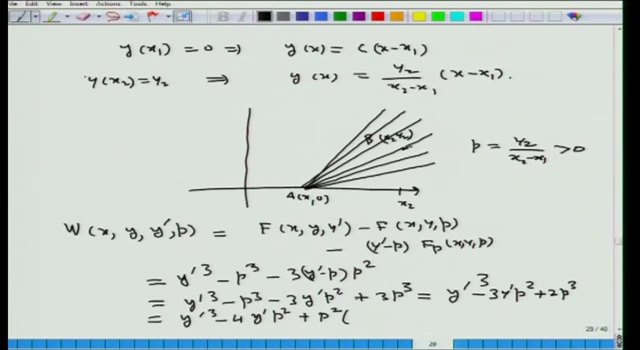 File Edit View Insert Actions Tools Help
y(x₁) = 0 ⇒ y(x) = C(x-x₁)
y(x₂) = y₂ ⇒ y(x) = y₂/(x₂-x₁) (x-x₁).
B(x₂,y₂)
p = y₂/(x₂-x₁) > 0
A(x₁,0) x₂
W(x, y, y', p) = F(x, y, y') - F(x, y, p)
- (y'-p) Fp(x,y,p)
= y'³ - p³ - 3(y'-p)p²
= y'³ - p³ - 3y'p² + 3p³ = y'³ - 3y'p² + 2p³
= y'³ - 4y'p² + p²(
29
29 / 40